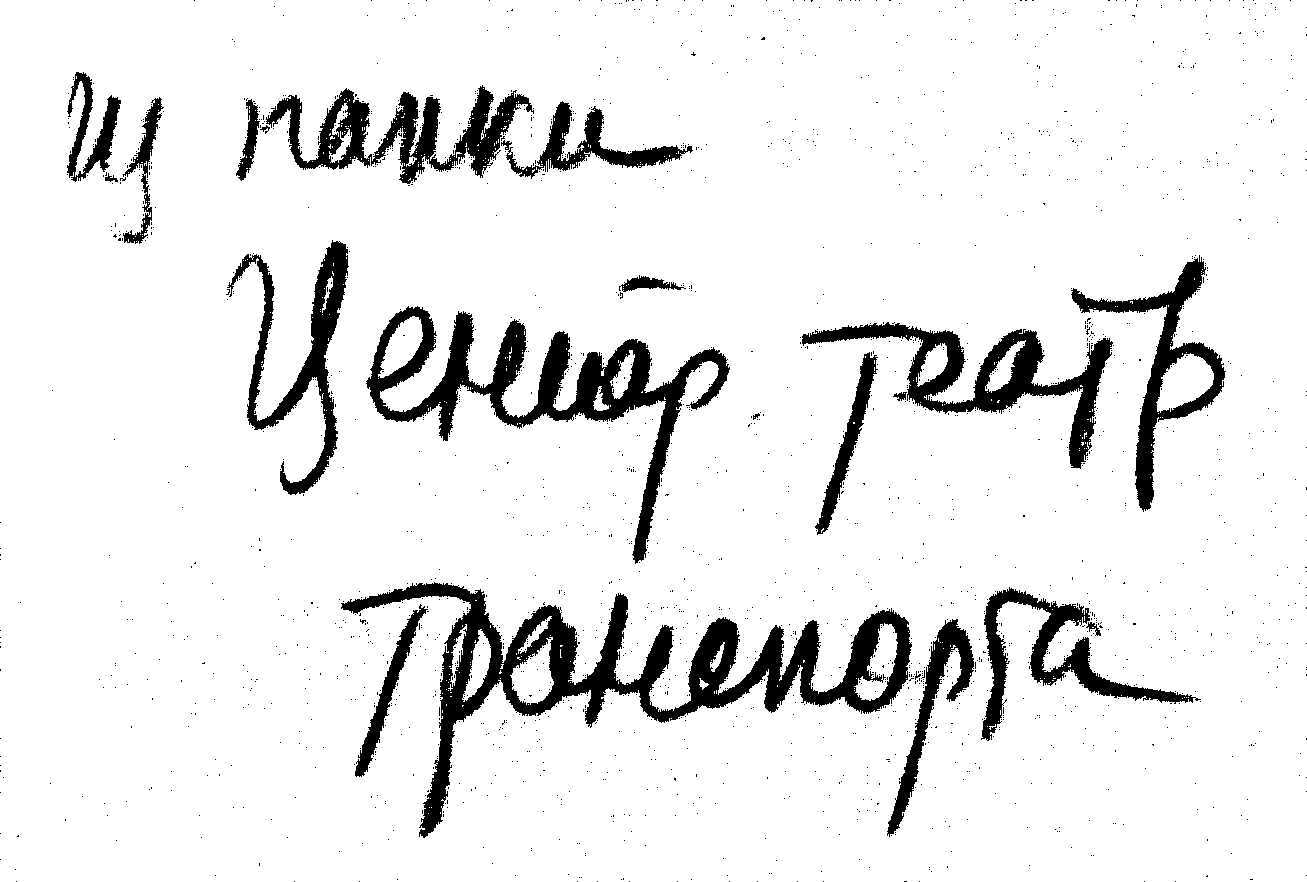 из папки
Центр. театр
Транспорта